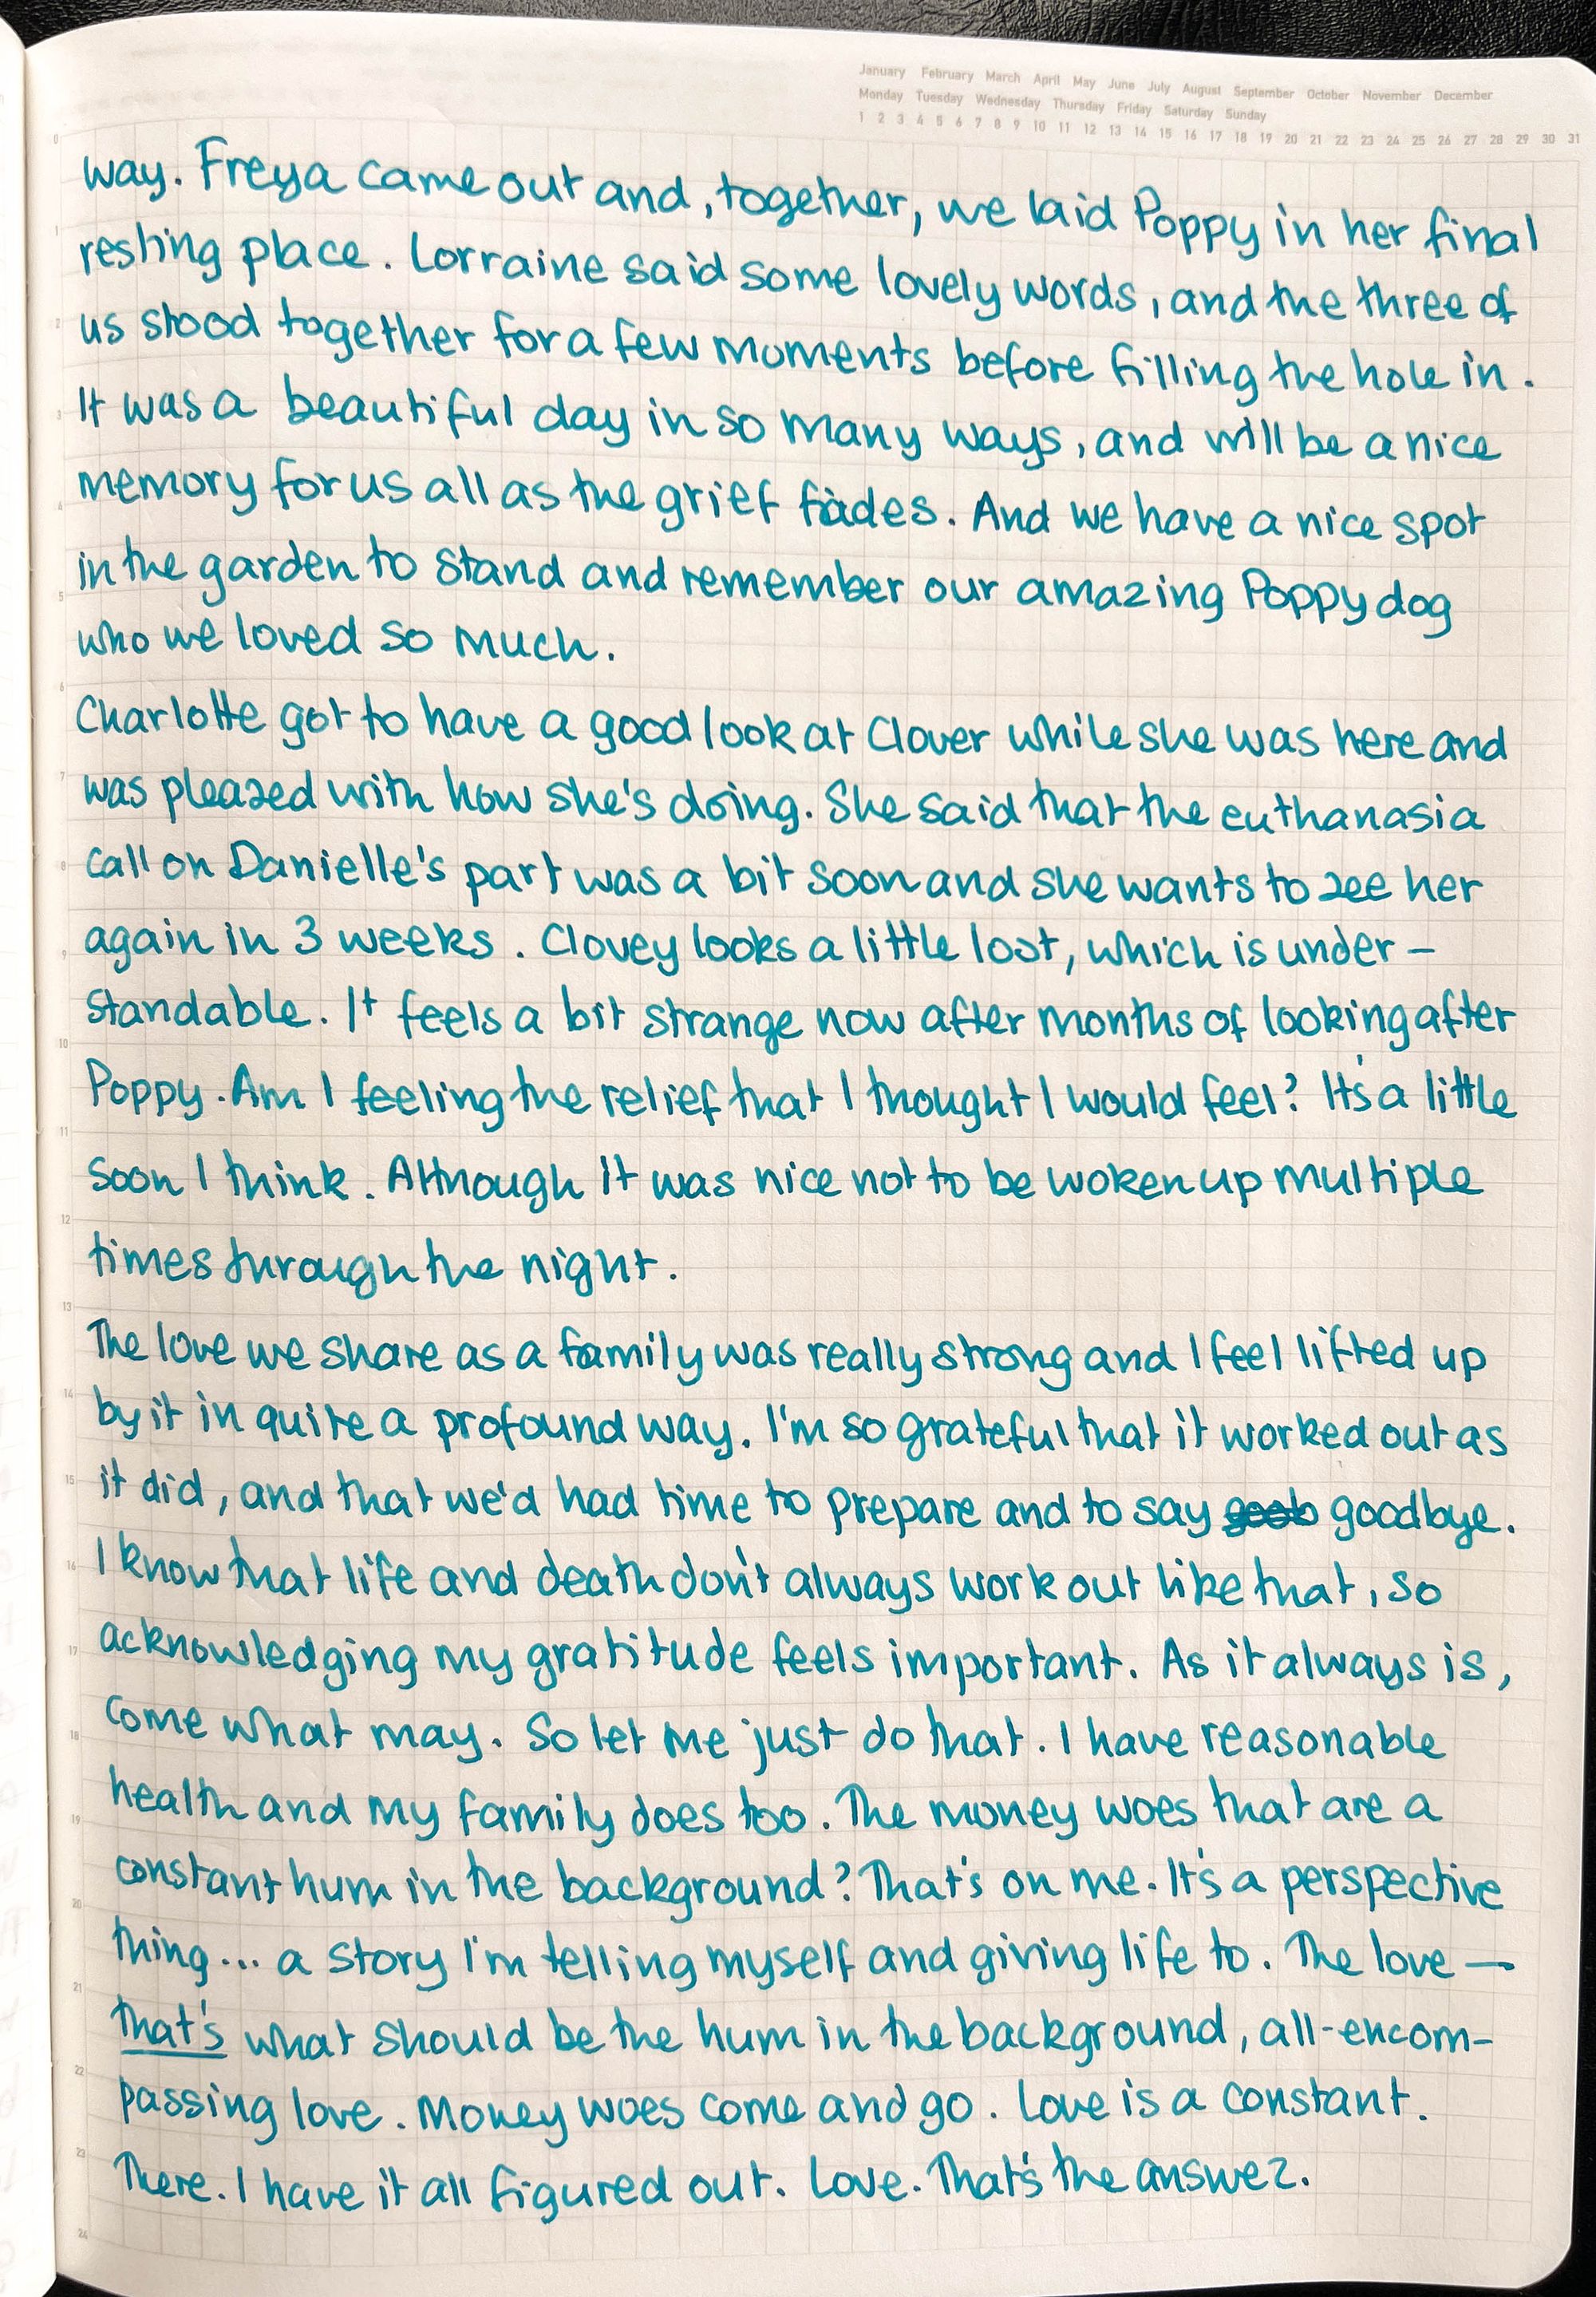 January February March April May June July August September October November December
Monday Tuesday Wednesday Thursday Friday Saturday Sunday
1 2 3 4 5 6 7 8 9 10 11 12 13 14 15 16 17 18 19 20 21 22 23 24 25 26 27 28 29 30 31
0
way. Freya came out and, together, we laid Poppy in her final
1
resting place. Lorraine said some lovely words, and the three of
2
us stood together for a few moments before filling the hole in.
3
It was a beautiful day in so many ways, and will be a nice
4
memory for us all as the grief fades. And we have a nice spot
5
in the garden to stand and remember our amazing Poppy dog
who we loved so much.
6
Charlotte got to have a good look at Clover while she was here and
7
was pleased with how she's doing. She said that the euthanasia
8
call on Danielle's part was a bit soon and she wants to see her
9
again in 3 weeks. Clovey looks a little lost, which is under-
standable. It feels a bit strange now after months of looking after
10
Poppy. Am I feeling the relief that I thought I would feel? It's a little
11
soon I think. Although it was nice not to be woken up multiple
12
times through the night.
13
The love we share as a family was really strong and I feel lifted up
14
by it in quite a profound way. I'm so grateful that it worked out as
15
it did, and that we'd had time to prepare and to say goodbye.
16
I know that life and death don't always work out like that, so
17
acknowledging my gratitude feels important. As it always is,
18
come what may. So let me just do that. I have reasonable
19
health and my family does too. The money woes that are a
20
constant hum in the background? That's on me. It's a perspective
thing... a story I'm telling myself and giving life to. The love —
21
that's what should be the hum in the background, all-encom-
22
passing love. Money woes come and go. Love is a constant.
23
There. I have it all figured out. Love. That's the answer.
24